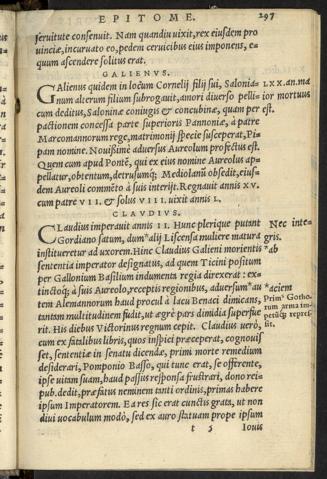 EPITOME. 297
seruitute consenuit. Nam quandiu uixit, rex eiusdem pro
uinciæ, incuruato eo, pedem ceruicibus eius imponens, e-
quum ascendere solitus erat.
GALIENVS.
GAlienus quidem in locum Cornelij filij sui, Salonia-
num alterum filium subrogauit, amori diuerso pelli-
cum deditus, Saloninæ coniugis & concubinæ, quam per
pactionem concessa parte superioris Pannoniæ, à patre
Marcomannorum rege, matrimonij specie susceperat, Pi-
pam nomine. Nouißimè aduersus Aureolum profectus est.
Quem cum apud Pontē, qui ex eius nomine Aureolus ap-
pellatur, obtentum, detrusumq; Mediolanū obsedit, eius-
dem Aureoli commēto à suis interijt. Regnauit annis xv.
cum patre VII. & solus VIII. uixit annis L.
LXX. an. ma
ior mortuus
est.
CLAVDIVS.
CLaudius imperauit annis II. Hunc plerique putant
Gordiano satum, dum *alij Licensa muliere matura
institueretur ad uxorem. Hinc Claudius Galieni morientis
sententia imperator designatus, ad quem Ticini positum
per Gallonium Basilium indumenta regia direxerat: ex-
tinctoq; à suis Aureolo, receptis regionibus, aduersum *au
tem Alemannorum haud procul à lacu Benaci dimicans,
tantam multitudinem fudit, ut ægrè pars dimidia superfue
rit. His diebus Victorinus regnum cepit. Claudius uerò,
cum ex fatalibus libris, quos inspici præceperat, cognouis
set, sententiæ in senatu dicendæ, primi morte remedium
desiderari, Pomponio Basso, qui tunc erat, se offerente,
ipse uitam suam, haud passus responsa frustrari, dono rei
pub. dedit, præfatus neminem tanti ordinis, primas habere
ipsum Imperatorem. Ea res sic erat cunctis grata, ut non
diui uocabulum modò, sed ex auro statuam prope ipsum
Nec inte-
gris.
*ab
*aciem
Prim' Gotho.
rum arma im-
t 5 Iouis